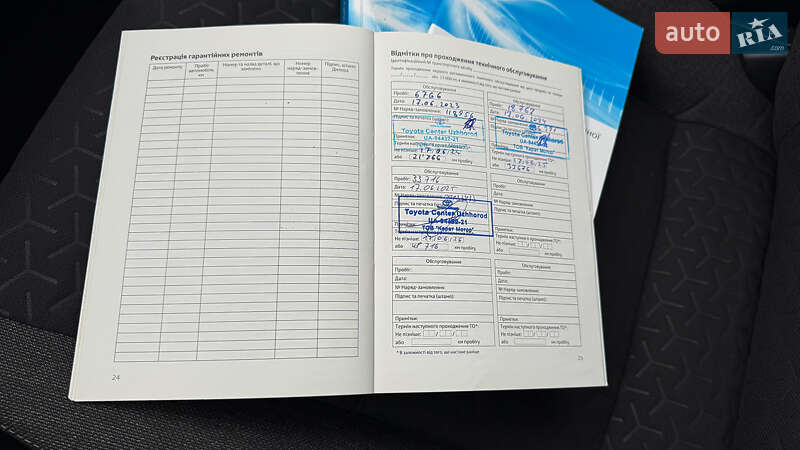 auto
RIA
.com
Реєстрація гарантійних ремонтів
Дата ремонту
Пробіг автомобіля, км
Номер та назва деталі, що замінено
Номер наряд-замов-лення
Підпис, штамп Дилера
24
Відмітки про проходження технічного обслуговування
Обслуговування
Пробіг: 6766
Дата: 17.06.2023
№ Наряд-замовлення: 118956
Підпис та печатка (штамп)
Toyota Center Uzhhorod
UA-94432-21
ТОВ "Карат Мотор"
Примітки:
Не пізніше: 17.06.24
або 21'766 км пробігу
Обслуговування
Пробіг: 18767
Toyota Center Uzhhorod
ТОВ "Карат Мотор"
Термін наступного проходження ТО*:
Не пізніше: 17.06.25
або км пробігу
Обслуговування
Пробіг: 33716
Дата: 17.06.2025
№ Наряд-замовлення:
Підпис та печатка
Toyota Center Uzhhorod
ТОВ "Карат Мотор"
Не пізніше: 17.06.26
або 48'716 км пробігу
Обслуговування
Пробіг:
Дата:
№ Наряд-замовлення:
Підпис та печатка (штамп):
Примітки:
Термін наступного проходження ТО*:
Не пізніше:
або км пробігу
Обслуговування
Пробіг:
Дата:
№ Наряд-замовлення:
Підпис та печатка (штамп):
Примітки:
Термін наступного проходження ТО*:
Не пізніше:
або км пробігу
Обслуговування
Пробіг:
Дата:
№ Наряд-замовлення:
Підпис та печатка (штамп):
Примітки:
Термін наступного проходження ТО*:
Не пізніше:
або км пробігу
* В залежності від того, що настане раніше
25